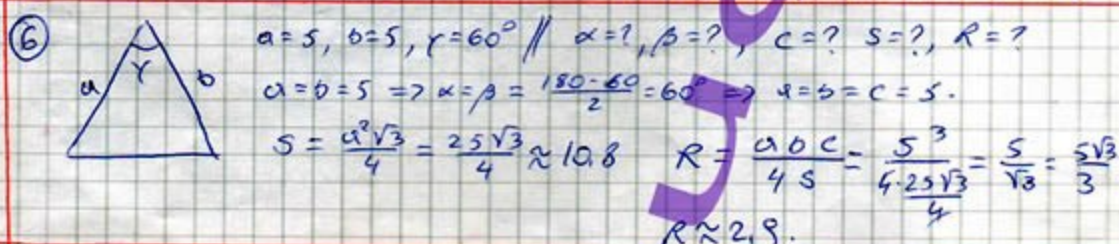 6 a = 5, b = 5, γ = 60° // α = ?, β = ?, c = ? S = ?, R = ?
a γ b
a = b = 5 => α = β = (180 - 60)/2 = 60° => a = b = c = 5.
S = a²√3/4 = 25√3/4 ≈ 10,8 R = abc/4S = 5³/(4·25√3/4) = 5/√3 = 5√3/3
R ≈ 2,9.